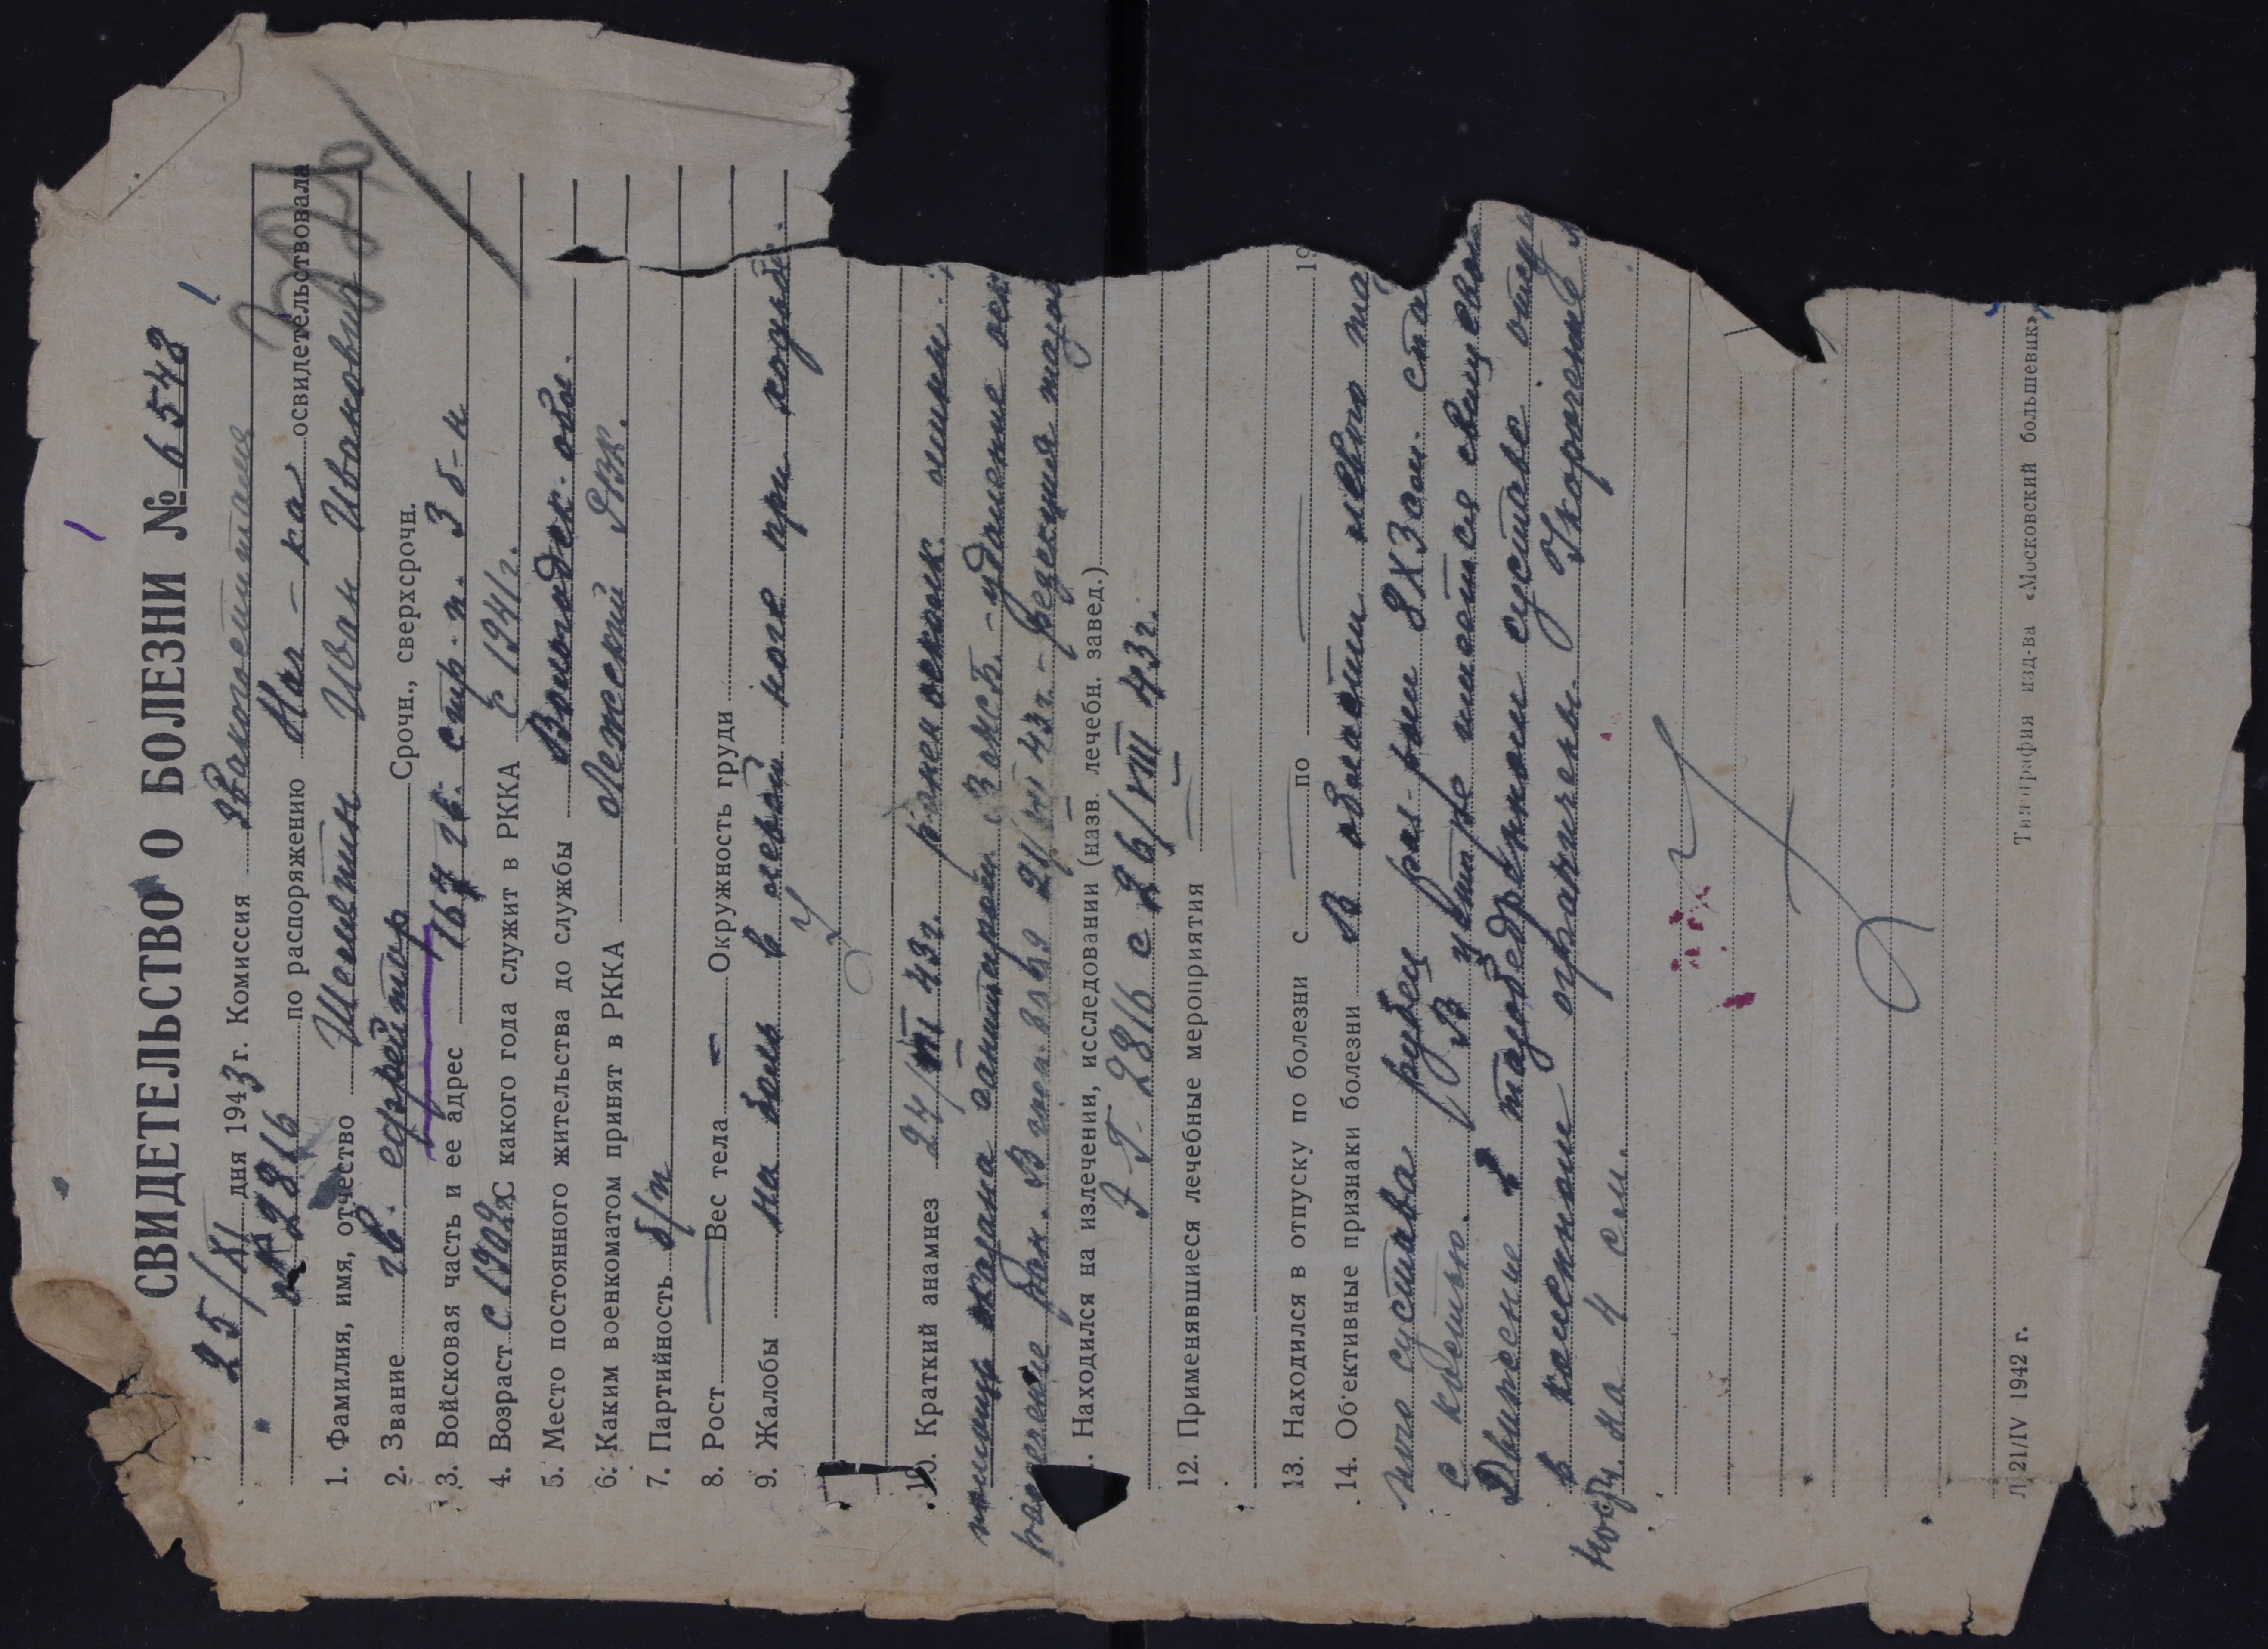 СВИДЕТЕЛЬСТВО О БОЛЕЗНИ № 6548
25/XI дня 1943 г. Комиссия Эвакогоспиталя
№ 2816 по распоряжению Нач-ка освидетельствовала
1. Фамилия, имя, отчество Иван Иванович
2. Звание гв. ефрейтор Срочн., сверхсрочн.
3. Войсковая часть и ее адрес 167 гв. стр. п. 3 б-н
4. Возраст с 1902 С какого года служит в РККА с 1941 г.
5. Место постоянного жительства до службы Вологодск. обл.
6. Каким военкоматом принят в РККА Лежский РВК.
7. Партийность б/п
8. Рост Вес тела Окружность груди
9. Жалобы на боль в левой ноге при ходьбе.
10. Краткий анамнез 24/VII 43 г. ранен осколк. мины.
помощь оказана санитаром. В - удаление
рассечение ран. В 21/VII 43 г. - резекция
. Находился на излечении, исследовании (назв. лечебн. завед.)
Э-Г- 2816 с 26/VIII 43 г.
12. Применявшиеся лечебные мероприятия
13. Находился в отпуску по болезни с по 19
14. Об'ективные признаки болезни В области левого та
ного сустава рубец раз-ром 8х3 см.
с костью. В имеется свищ
Движение в тазобедренном суставе
в коленном ограничены. Укорочение
ноги на 4 см.
Л 21/IV 1942 г. Типография изд-ва «Московский большевик»